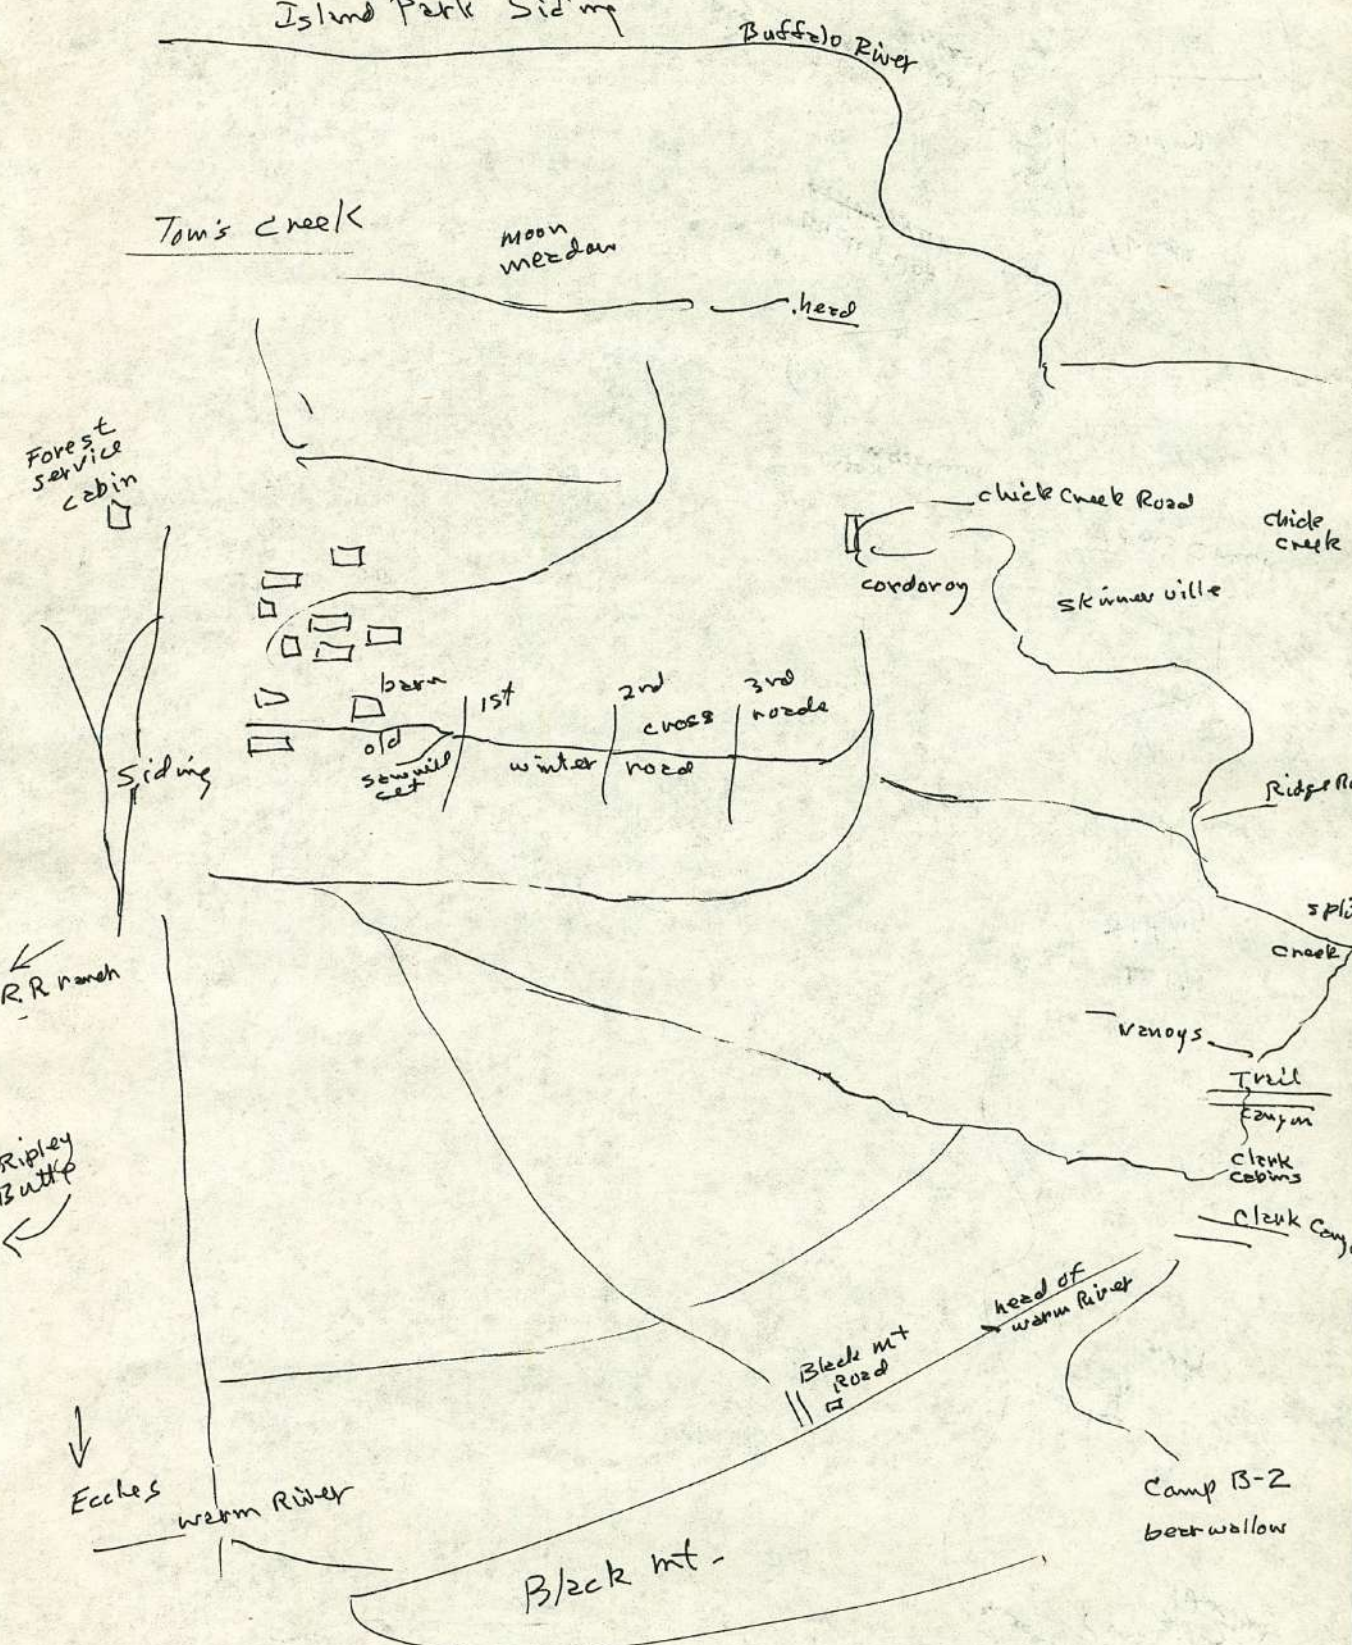 Island Park Siding
Buffalo River
Tom's Creek
moon
meadow
.head
Forest
service
cabin
chick creek Road
chick
creek
cordoroy
skinnerville
barn
1st
2nd
3rd
cross
roads
old
sawmill
set
winter road
siding
Ridge
R.R ranch
creek
vanoys
Trail
canyon
clark
cabins
clark
Ripley
Butte
head of
warm River
Black mt
Road
Eccles
warm River
Camp B-2
bear wallow
Black mt.